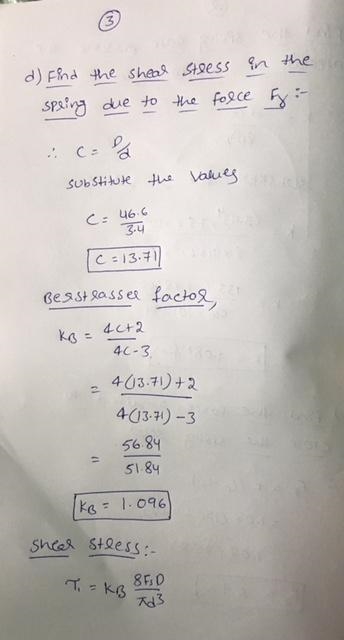 3
d) Find the shear stress in the
spring due to the force Fy :-
∴ C = D/d
substitute the values
C = 46.6/3.4
C = 13.71
Berstrasser factor,
KB = 4C+2/4C-3
= 4(13.71)+2/4(13.71)-3
= 56.84/51.84
KB = 1.096
Shear stress:-
τ₁ = KB 8F₁D/πd³